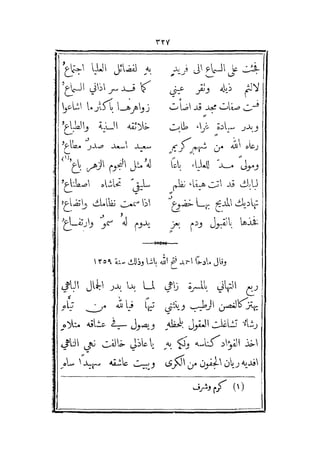 ٣٢٧
فجئت على السماع الى فريد به لفضائل العليا اجتماع
لالثم ذيله وتقر عيني كما قد سر اذاني السماع
صفات مجد قد اضأت زواهرها باكثر ما اشاعوا
وبدر سيادة غراء طابت خلائقه السنية والطباع
رعاه الله من شهم كريم سعيد اسعد صدر مطاع
ومولى مد للعلياء باعا له مثل النجوم الزهر باع (١)
نبابك قد اتت هيفاء نظم سليقي تحاشاه اصطناع
تهاديك المديح بها خضوع اذا سمعت نظامك واتضاع
فخذها بالقبول ودم بعز يدوم له سمو وارتفاع
وقال مادحا احمد فتح الله باشا وذلك سنة ١٢٥٩
ربع التهاني بالمسرة زاهي لما بدا بدر الجمال الباهي
يهتز كالغصن الرطيب وينثني تيها فيالله من تياه
رشاء تشاغلت العقول بلحظه ويصول في عشاقه متلاه
اخذ الفؤاد كناسه ولكم به يا عاذلي خالفت نهي الناهي
افديه ريان الجفون من الكرى ويبيت عاشقه سهيدا ساه
(١) كرم وشرف